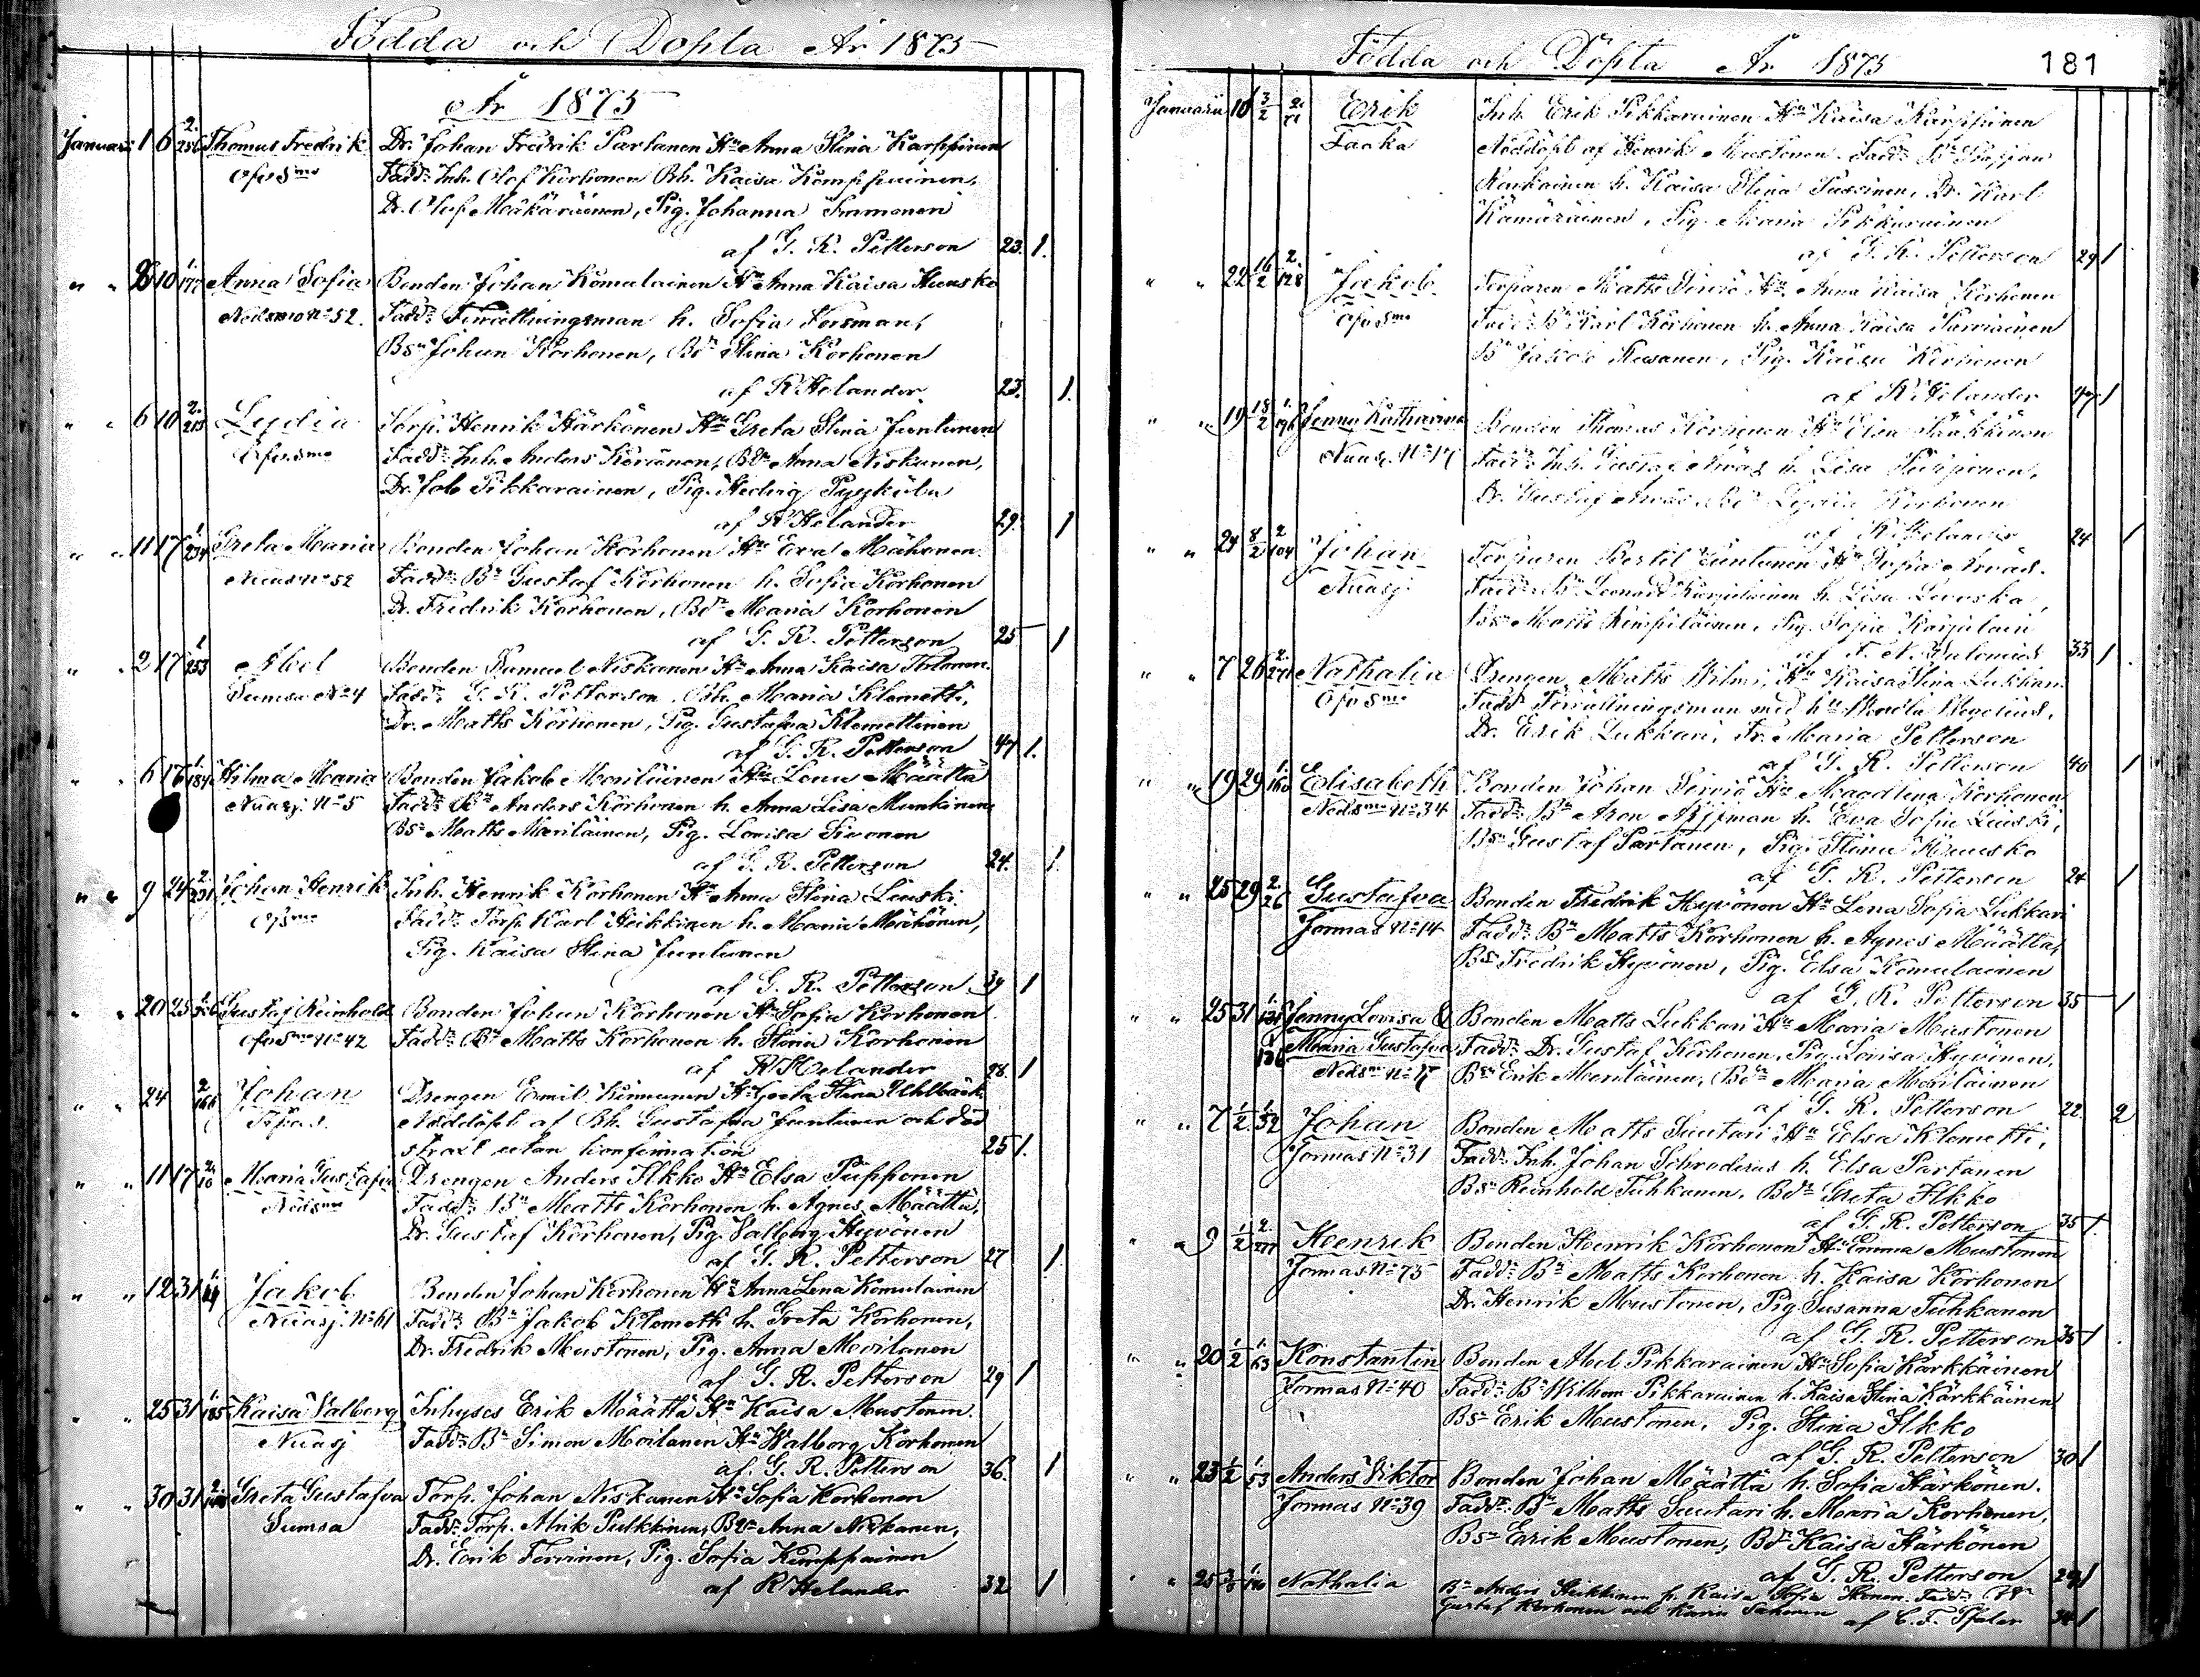 Födda och Döpta År 1875
År 1875
Januari 1 6 2. 256 Thomas Fredrik Dr. Johan Fredrik Partanen Hu Anna Stina Karppinen
Ofvsmo Fadd: Inh. Olof Korhonen Bh. Kaisa Komppainen,
Dr. Olof Mäkäräinen, Pig. Johanna
af G. R. Petterson 23. 1.
" " 10 1. 177 Anna Sofia Bonden Johan Komulainen Hu Anna Kaisa Huusko
Nedsmo No 52. Fadd: Förrättningsman h. Sofia Forsman,
Bsn Johan Korhonen, Bdr Stina Korhonen
af R Helander 23. 1.
" " 6 10 2. 213 Lydia Torp. Henrik Härkönen Hu Greta Stina Juntunen
Ofvsmo Fadd: Inh. Anders Korhonen, Bdr Anna Niskanen,
Dr. Job Pikkarainen, Pig. Hedvig
af R Helander 29. 1
" " 11 17 1 234 Greta Maria Bonden Johan Korhonen Hu Eva Mähönen
Nuas No 52 Fadd: Bn Gustaf Korhonen h. Sofia Korhonen
Dr. Fredrik Korhonen, Bdr Maria Korhonen
af G. R. Petterson 25 1
" " 2 17 1 253 Abel Bonden Samuel Niskanen Hu Anna Kaisa Tolonen
Sumsa No 4 Fadd: G. R. Petterson Bh. Maria Klemetti,
Dr. Matts Korhonen, Pig. Gustafva Klemettinen
af G. R. Petterson 47 1.
" " 6 17 1 184 Hilma Maria Bonden Jakob Meriläinen Hu Lena Määttä
Nuasj. No 5 Fadd: Bn Anders Korhonen h. Anna Lisa Munkinen
Bsn Matts Meriläinen, Pig. Lovisa Sivonen
af G. R. Petterson 24. 1.
" " 9 24 2. 231 Johan Henrik Inh. Henrik Korhonen Hu Anna Stina Leinski
Ofsmo Fadd: Torp. Karl Heikkinen h. Maria Mähönen,
Pig. Kaisa Stina Juntunen
af G. R. Petterson 39 1
" " 20 25 Gustaf Reinhold Bonden Johan Korhonen Hu Sofia Korhonen
Ofvsmo No 42 Fadd: Bn Matts Korhonen h. Stina Korhonen
af R Helander 28. 1
" " 24 2 166 Johan Drengen Emil Kinnunen Hu Greta Stina Uhlbäck
Tipas. Nöddöpt af Bh. Gustafva Juntunen och död
straxt utan konfirmation 25 1.
" " 11 17 2. 10 Maria Gustafva Drengen Anders Ilkko Hu Elsa Pupponen
Nedsmo Fadd: Bn Matts Korhonen h. Agnes Määttä,
Dr. Gustaf Korhonen, Pig. Valborg Hyvönen
af G. R. Petterson 27 1
" " 12 31 Jakob Bonden Johan Korhonen Hu Anna Lena Komulainen
Nuasj. No 61 Fadd: Bn Jakob Klemetti h. Greta Korhonen,
Dr. Fredrik Mustonen, Pig. Anna Moilanen
af G. R. Petterson 29 1
" " 25 31 Kaisa Valborg Inhyses Erik Määttä Hu Kaisa Mustonen.
Nuasj Fadd: Bn Simon Moilanen Hu Walborg Korhonen
af G. R. Petterson 36. 1
" " 30 31 Greta Gustafva Torp. Johan Niskanen Hu Sofia Korhonen
Sumsa Fadd: Torp. Alrik Pulkkinen, Bdr Anna Niskanen,
Dr. Erik Tervinen, Pig. Sofia Kemppainen
af R Helander 32 1
Födda och Döpta År 1875 181
Januari 10 3/2 2. 71 Erik Inh. Erik Pikkarainen Hu Kaisa Karppinen
Nöddöpt af Henrik Mustonen. Fadd: Bn Staffan
Karkainen h. Kaisa Stina Tuovinen, Dr. Karl
Kämäräinen, Pig. Maria Pikkarainen
af G. R. Petterson 29 1
" " 22 16/2 2. 128 Jakob Torparen Matts Servio Hu Anna Kaisa Korhonen
Ofvsmo Fadd: Bn Karl Korhonen h. Anna Kaisa
Bsn Jakob Kesanen, Pig. Kaisa Korhonen
af R Helander 47 1
" " 19 18/2 1. 196 Jenny Katharina Bonden Thomas Korhonen Hu Elsa
Nuasj. No 17 Fadd: Inh. Gustaf h. Lisa
Dr. Gustaf Bdr Lydia Korhonen
af R Helander 24 1
" " 24 8/2 2 104 Johan Torparen Bertil Juntunen Hu Sofia
Nuasj. Fadd: Bn Leonard Karjalainen h. Lisa
Bsn Matts Kemppainen, Pig. Sofia
af 33 1
" " 7 26 2. 270 Nathalia Drengen Matts Wilmi, Hu Kaisa Stina Lukkari
Ofvsmo Fadd: Förrättningsman med hu
Dr. Erik Lukkari, Fr. Maria Petterson
af G. R. Petterson 40 1
" " 19 29 1. 163 Elisabeth Bonden Johan Servio Hu Magdlena Korhonen
Nedsmo No 34 Fadd: Bn Aron Nyman h. Eva Sofia Leinski,
Bsn Gustaf Partanen, Pig. Stina Huusko
af G. R. Petterson 24 1
" " 25 29 2. 26 Gustafva Bonden Fredrik Hyvönen Hu Lena Sofia Lukkari
Jormas No 14 Fadd: Bn Matts Korhonen h. Agnes Määttä,
Bsn Fredrik Hyvönen, Pig. Elsa Komulainen
af G. R. Petterson 35 1
" " 25 31 1. 135 Jenny Lovisa & Bonden Matts Lukkari Hu Maria Mustonen
136 Maria Gustafva Fadd: Dr. Gustaf Korhonen, Pig. Lovisa Hyvönen,
Nedsmo Bsn Erik Meriläinen, Bdr Maria Meriläinen
af G. R. Petterson 22. 2
" " 7 1/2 1/52 Johan Bonden Matts Suutari Hu Elsa Klemetti,
Jormas No 31 Fadd: Inh. Johan Schroderus h. Elsa Partanen
Bsn Reinhold Tuhkanen, Bdr Greta Ilkko
af G. R. Petterson 35 1.
" " 9 1/2 2. 277 Henrik Bonden Henrik Korhonen Hu Emma Mustonen
Jormas No 75 Fadd: Bn Matts Korhonen h. Kaisa Korhonen
Dr. Henrik Mustonen, Pig Susanna Tuhkanen
af G. R. Petterson 35 1
" " 20 1/2 1. 63 Konstantin Bonden Abel Pikkarainen Hu Sofia Kärkkäinen
Jormas No 40 Fadd: Bn Wilhem Pikkarainen h. Kaisa Stina Kärkkäinen
Bsn Erik Mustonen, Pig. Stina Ilkko
af G. R. Petterson 30 1
" " 23 1/2 1 53 Anders Viktor Bonden Johan Määttä h. Sofia Härkönen.
Jormas No 39 Fadd: Bn Matts Suutari h. Maria Korhonen,
Bsn Erik Mustonen, Bdr Kaisa Härkönen
af G. R. Petterson 29 1
" " 25 Nathalia Bn Anders Heikkinen h. Kaisa Sofia Fadd: Bn
Gustaf Korhonen och Karin
af C. F. Pfaler 34 1